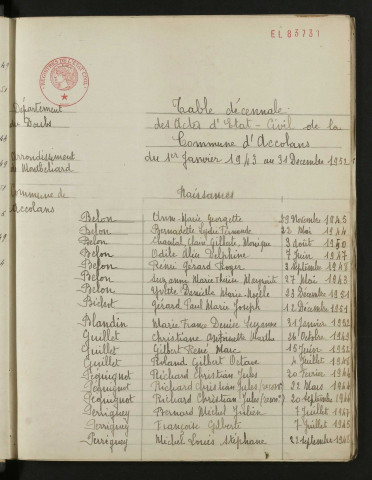 EL 83731
Département
du Doubs
arrondissement
de Montbéliard
Commune de
Accolans
Table décennale
des Actes d'Etat-Civil de la
Commune d'Accolans
du 1er Janvier 1943 au 31 Décembre 1952
Naissances
Belon Anne Marie Georgette 29 Novembre 1943
Belon Bernadette Lydie Fernande 22 Mai 1944
Belon Chantal Claire Monique 3 août 1950
Belon Odile Alice Delphine 7 Juin 1947
Belon Rémi Gérard Roger 2 Septembre 1948
Belon Suzanne Marie Thérèse Marguerite 27 Mai 1943
Belon Danielle Marie 23 Décembre
Gérard Paul Marie Joseph 12 Décembre 1951
Blandin Marie France Denise Suzanne 31 Janvier 1952
Guillet Christiane Antoinette Marthe 26 Octobre 1949
Guillet Gilbert René Marc 15 Juin
Guillet Roland Gilbert Octave Juillet
Pequignot Richard Christian Jules 20 Février 1944
Pequignot Richard Christian Jules 22 Mars 1944
Pequignot Richard Christian Jules 20 Septembre 1944
Perriguey Bernard Michel Julien 7 Juillet 1947
Perriguey Françoise Gilberte 7 Juillet 1945
Perriguey Michel Louis Stéphane 23 Septembre